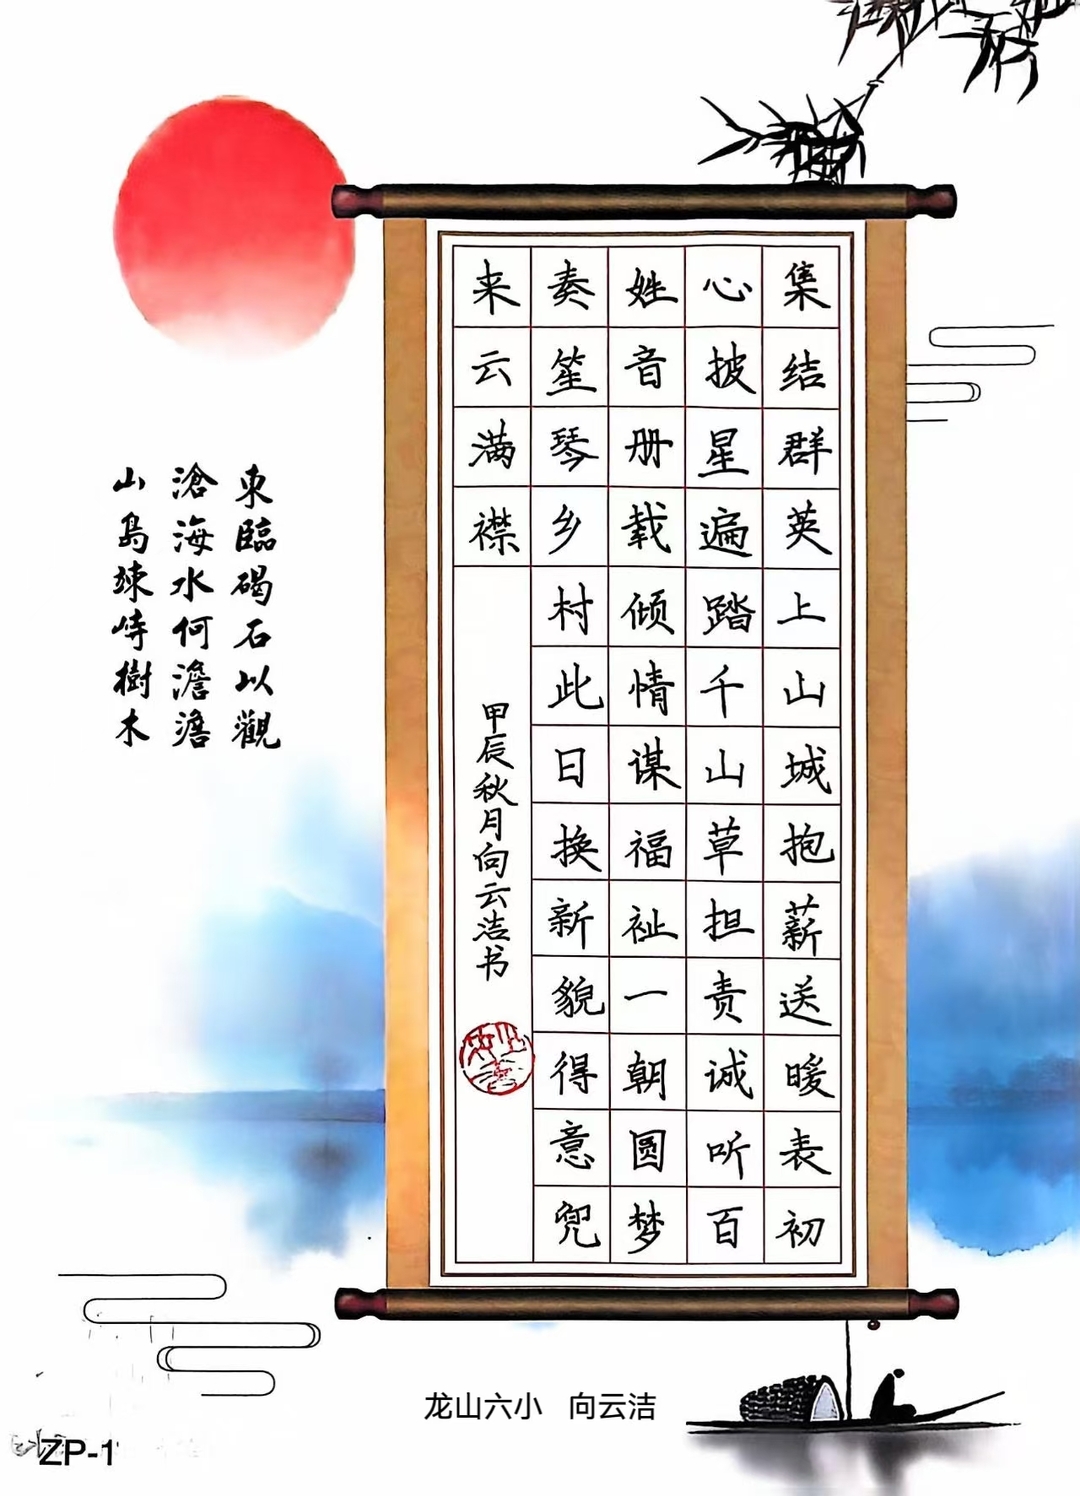 集结群英上山城抱薪送暖表初
心披星遍踏千山草担责诚听百
姓音册载倾情谋福祉一朝圆梦
奏笙琴乡村此日换新貌得意兜
来云满襟
甲辰秋月向云洁书
東臨碣石以觀
滄海水何澹澹
山島竦峙樹木
龙山六小 向云洁
ZP-1